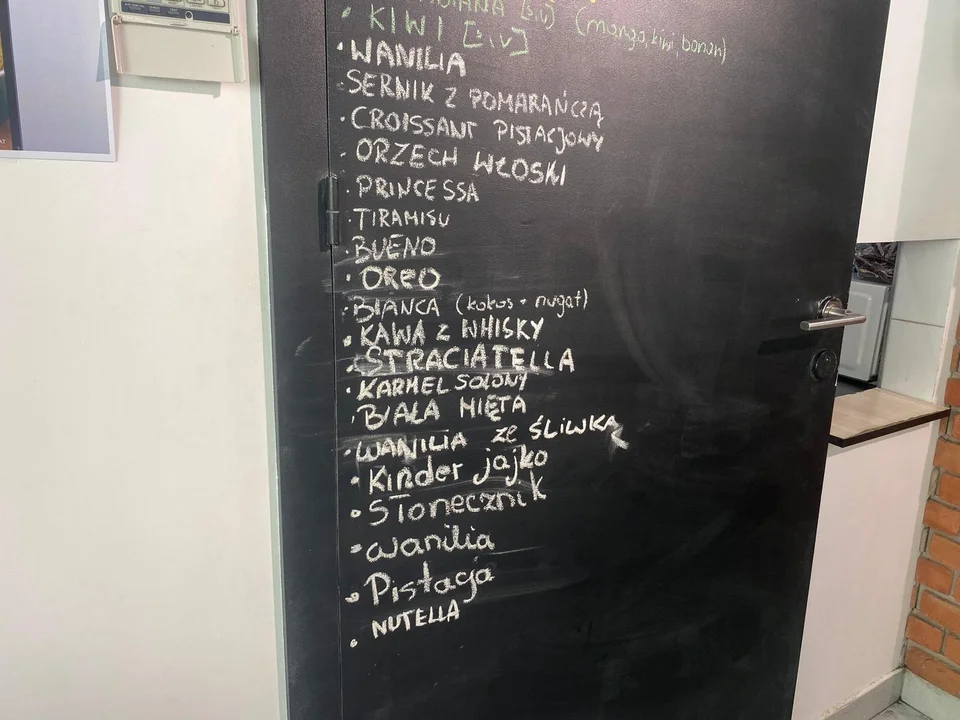 (mango, kiwi, banan)
• KIWI [
• WANILIA
• SERNIK Z POMARAŃCZĄ
• CROISSANT PISTACJOWY
• ORZECH WŁOSKI
• PRINCESSA
• TIRAMISU
• BUENO
• OREO
• BIANCA (kokos + nugat)
• KAWA Z WHISKY
• STRACIATELLA
• KARMEL SOLONY
• BIAŁA MIĘTA
• WANILIA ze ŚLIWKĄ
• Kinder jajko
• Słonecznik
• wanilia
• Pistacja
• NUTELLA